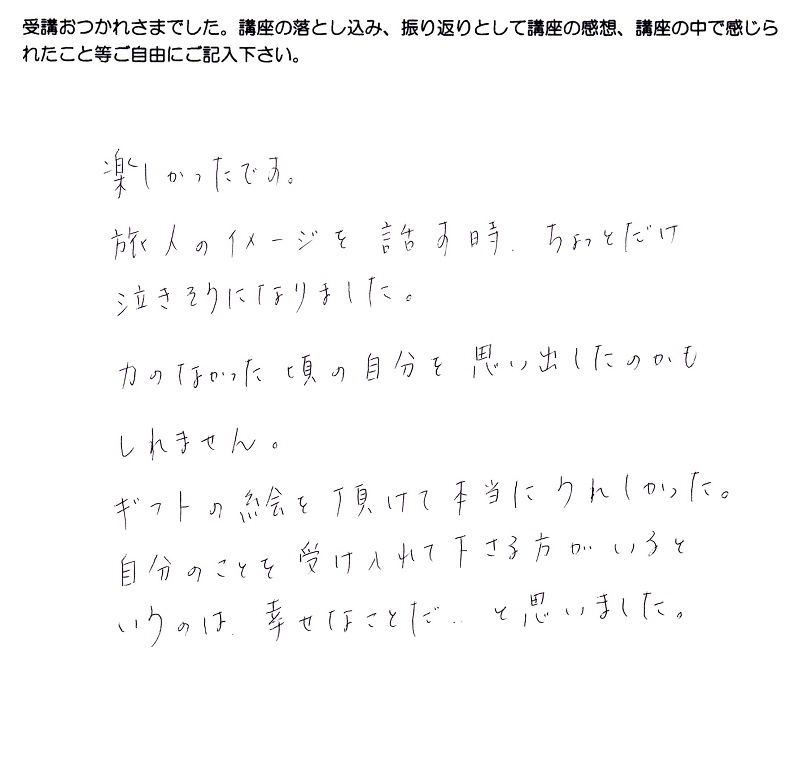 受講おつかれさまでした。講座の落とし込み、振り返りとして講座の感想、講座の中で感じら
れたこと等ご自由にご記入下さい。
楽しかったです。
旅人のイメージを話す時、ちょっとだけ
泣きそうになりました。
力のなかった頃の自分を思い出したのかも
しれません。
ギフトの絵を頂けて本当にうれしかった。
自分のことを受け入れて下さる方がいると
いうのは、幸せなことだ‥と思いました。